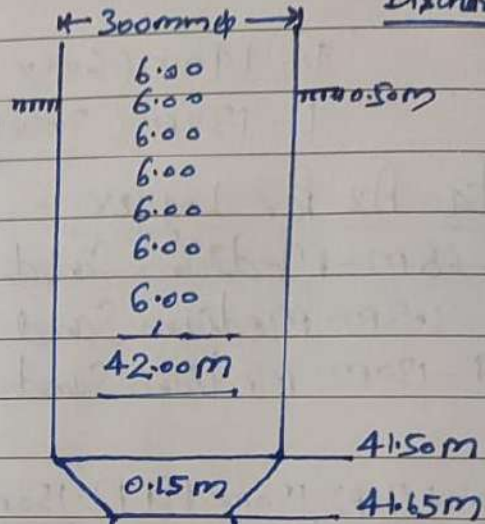 300mmφ
6.00
6.00 0.50m
6.00
6.00
6.00
6.00
6.00
42.00m
41.50m
0.15m
41.65m